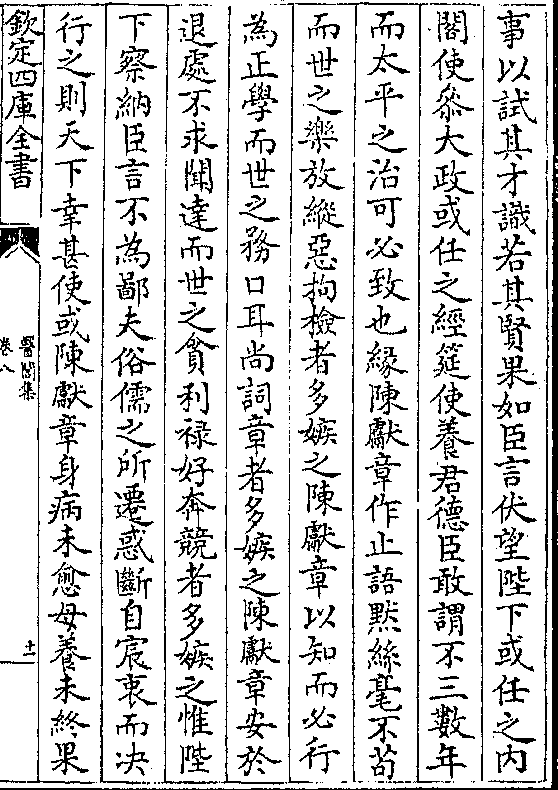 事以試其才識若其賢果如臣言伏望陛下或任之内
閣使叅大政或任之經筵使養君德臣敢謂不三數年
而太平之治可必致也緣陳獻章作止語黙絲毫不苟
而世之樂放縱惡拘檢者多嫉之陳獻章以知而必行
為正學而世之務口耳尚詞章者多嫉之陳獻章安於
退處不求聞達而世之貪利禄好奔競者多嫉之惟陛
下察納臣言不為鄙夫俗儒之所遷惑斷自宸衷而决
行之則天下幸甚使或陳獻章身病未愈母養未終果
欽定四庫全書
醫閭集
卷八
十一